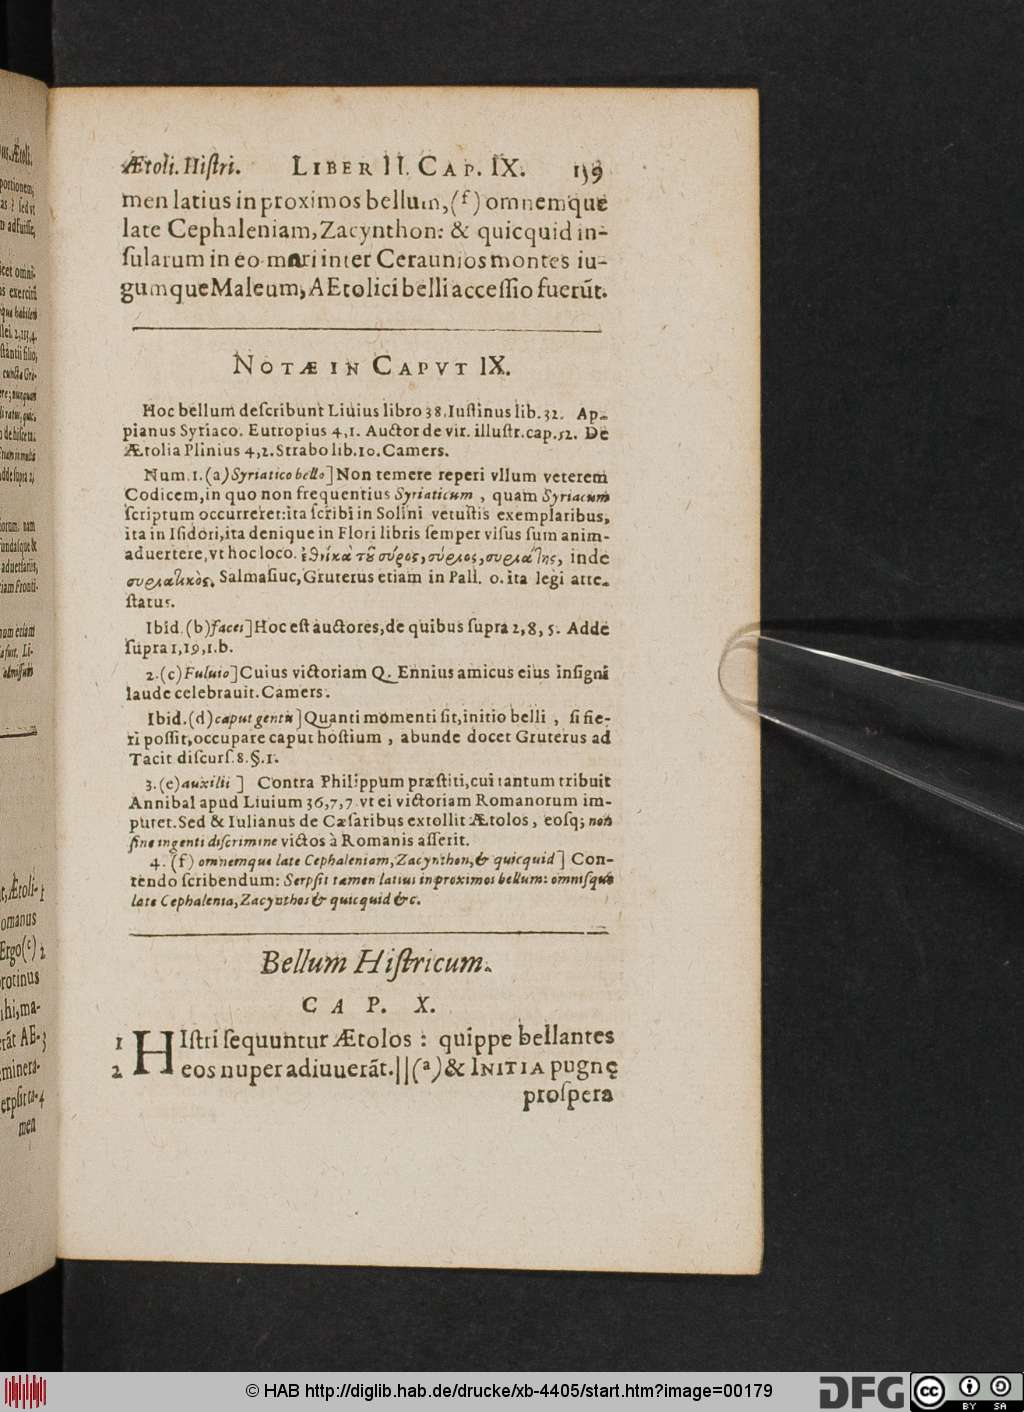 Ætoli. Histri. LIBER II. CAP. IX. 159
men latius in proximos bellum, (f) omnemque
late Cephaleniam, Zacynthon: & quicquid in-
ſularum in eo mari inter Ceraunios montes iu-
gumque Maleum, AEtolici belli acceſſio fuerũt.
NOTÆ IN CAPVT IX.
Hoc bellum deſcribunt Liuius libro 38. Iuſtinus lib. 32. Ap-
pianus Syriaco. Eutropius 4, 1. Auctor de vir. illuſtr. cap. 52. De
Ætolia Plinius 4, 2. Strabo lib. 10. Camers.
Num. 1. (a) Syriatico bello] Non temere reperi vllum veterem
Codicem, in quo non frequentius Syriaticum, quam Syriacum
ſcriptum occurreret: ita ſcribi in Solini vetuſtis exemplaribus,
ita in Iſidori, ita denique in Flori libris ſemper viſus ſum anim-
aduertere, vt hoc loco. ἐθνικὰ τοῦ σύρος, σύριος, συριάτης, inde
συριατικὸς. Salmaſiuc, Gruterus etiam in Pall. o. ita legi atte-
ſtatus.
Ibid. (b) faces] Hoc eſt auctores, de quibus ſupra 2, 8, 5. Adde
ſupra 1, 19, 1. b.
2. (c) Fuluio] Cuius victoriam Q. Ennius amicus eius inſigni
laude celebrauit. Camers.
Ibid. (d) caput gentis] Quanti momenti ſit, initio belli, ſi fie-
ri poſſit, occupare caput hoſtium, abunde docet Gruterus ad
Tacit diſcurſ. 8. §. 1.
3. (e) auxilii] Contra Philippum præſtiti, cui tantum tribuit
Annibal apud Liuium 36, 7, 7 vt ei victoriam Romanorum im-
putet. Sed & Iulianus de Cæſaribus extollit Ætolos, eoſq; non
ſine ingenti diſcrimine victos à Romanis aſſerit.
4. (f) omnemque late Cephaleniam, Zacynthon, & quicquid] Con-
tendo ſcribendum: Serpſit tamen latius in proximos bellum: omniſque
late Cephalenia, Zacynthos & quicquid &c.
Bellum Hiſtricum.
CAP. X.
1 HIſtri ſequuntur Ætolos: quippe bellantes
2 eos nuper adiuuerãt. || (a) & INITIA pugnę
proſpera
© HAB http://diglib.hab.de/drucke/xb-4405/start.htm?image=00179
DFG
cc BY SA